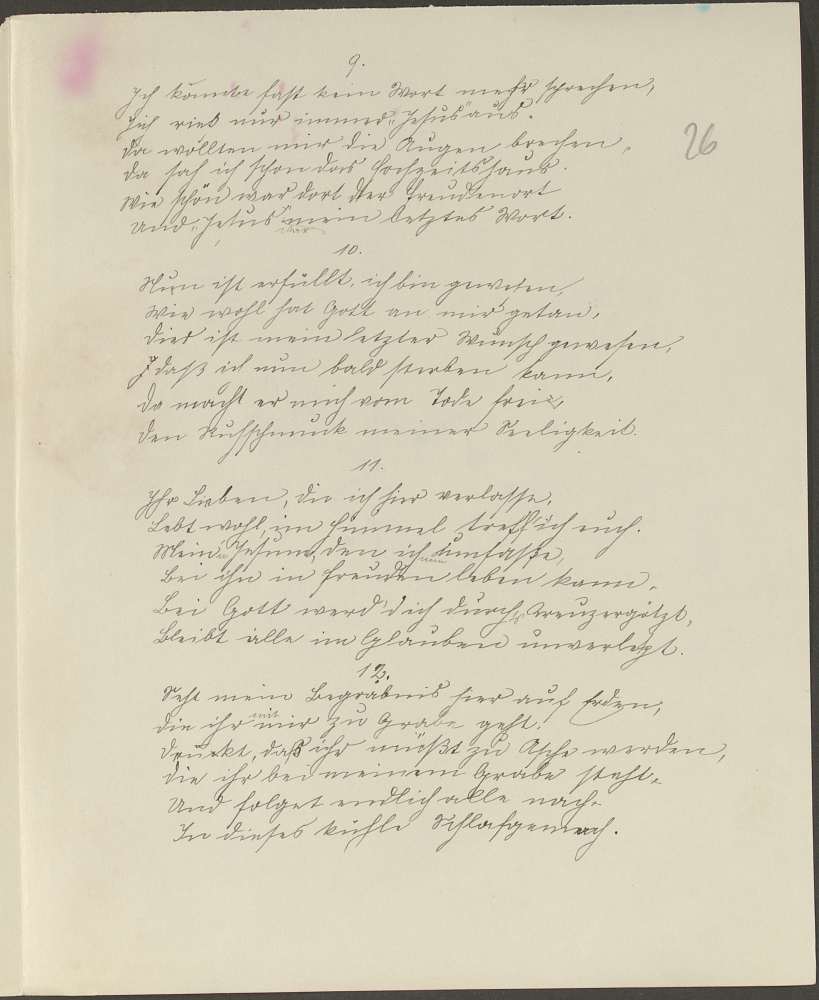 9.
Ich konnte fast kein Wort mehr sprechen,
Ich rief nur immer „Jesus" aus.
Da wollten mir die Augen brechen,
26
Da sah ich schon das Hochzeitshaus.
Wie schön war dort der Freudenort
Und „Jesus" mein letztes Wort.
war
10.
Nun ist erfüllt, ich bin gewesen,
Wie wohl hat Gott an mir getan,
Dies ist mein letzter Wunsch gewesen,
daß ich nun bald sterben kann,
Da macht er mich vom Tode frei,
Den meiner Seeligkeit.
11.
Ihr Lieben, die ich hier verlasse,
Lebt wohl, im Himmel treff' ich euch.
Mein Jesum, den ich umfaße,
nun
Bei ihn in Freuden leben kann.
Bei Gott werd' ich durchs Kreuz ergötzt,
Bleibt alle im Glauben unverletzt.
12.
Seht mein Begräbnis hier auf Erden,
mit
Die ihr mir zu Grabe geht.
Denkt, daß ihr müßt zu Asche werden,
Die ihr bei meinem Grabe steht.
Und folget endlich alle nach
In dieses kühle Schlafgemach.